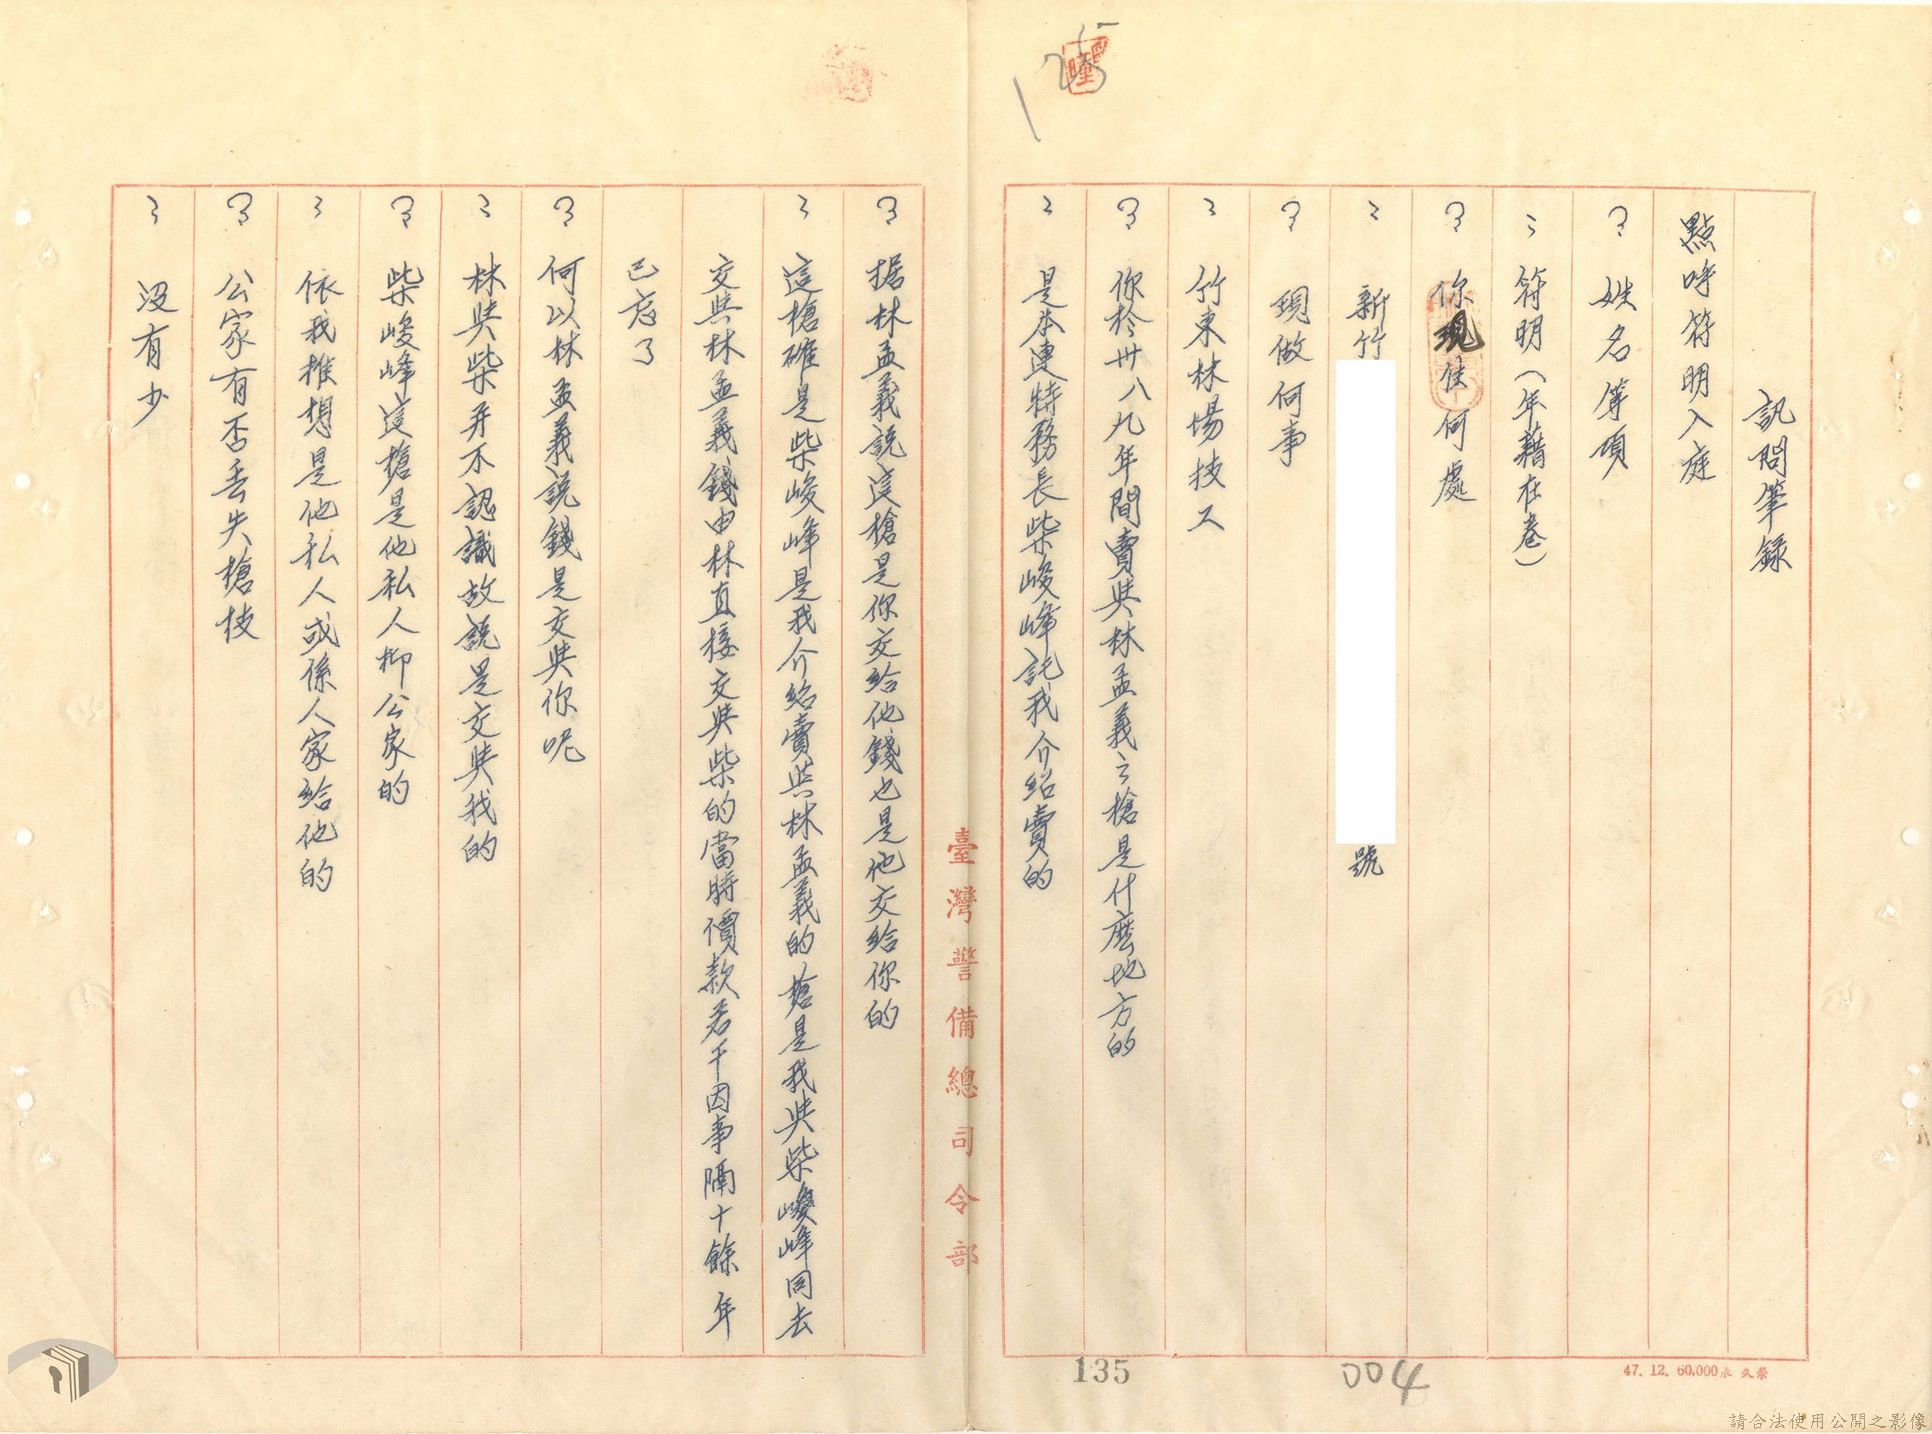 訊問筆錄
點呼符明入庭
? 姓名等項
: 符明（年籍在卷）
? 你現住何處
: 新竹 號
? 現做何事
: 竹東林場技工
? 你於卅八九年間賣與林孟義之槍是什麼地方的
: 是本連特務長柴峻峰託我介紹賣的
臺灣警備總司令部
? 据林孟義說這槍是你交給他錢也是他交給你的
: 這槍確是柴峻峰是我介紹賣與林孟義的槍是我與柴峻峰同去
交與林孟義錢由林直接交與柴的當時價款若干因事隔十餘年
已忘了
? 何以林孟義說錢是交與你呢
: 林與柴并不認識故說是交與我的
? 柴峻峰這槍是他私人抑公家的
: 依我推想是他私人或係人家給他的
? 公家有否丢失槍枝
: 沒有少
135
004
47. 12. 60,000 久榮
請合法使用公開之影像